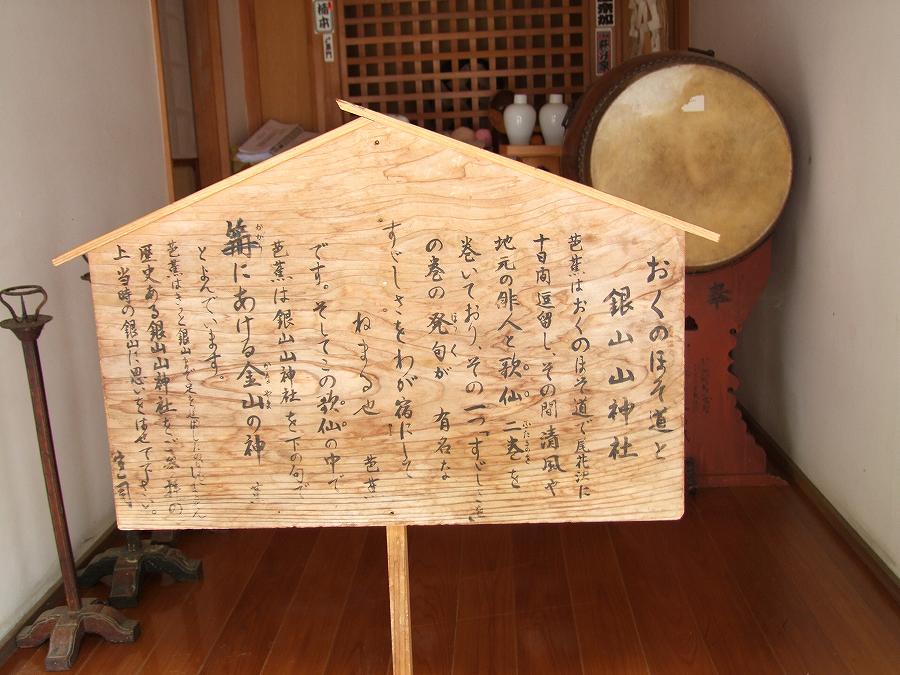 おくのほそ道と
銀山山神社
芭蕉はおくのほそ道で尾花沢に
十日間逗留し、その間清風や
地元の俳人と歌仙二巻を
ふたまき
巻いており、その一つすゞしさを
の巻の発句が 有名な
ほっく
すゞしさをわが宿にして
ねまる也 芭蕉
です。そしてこの歌仙の中で
芭蕉は銀山山神社を下の句で
篝にあける金山の神
かが
かなやま
とよんでいます。
芭蕉はきっと銀山まで足を
歴史ある銀山山神社をご参拝の
上 当時の銀山に思いをはせて下さい。
宮司
奉